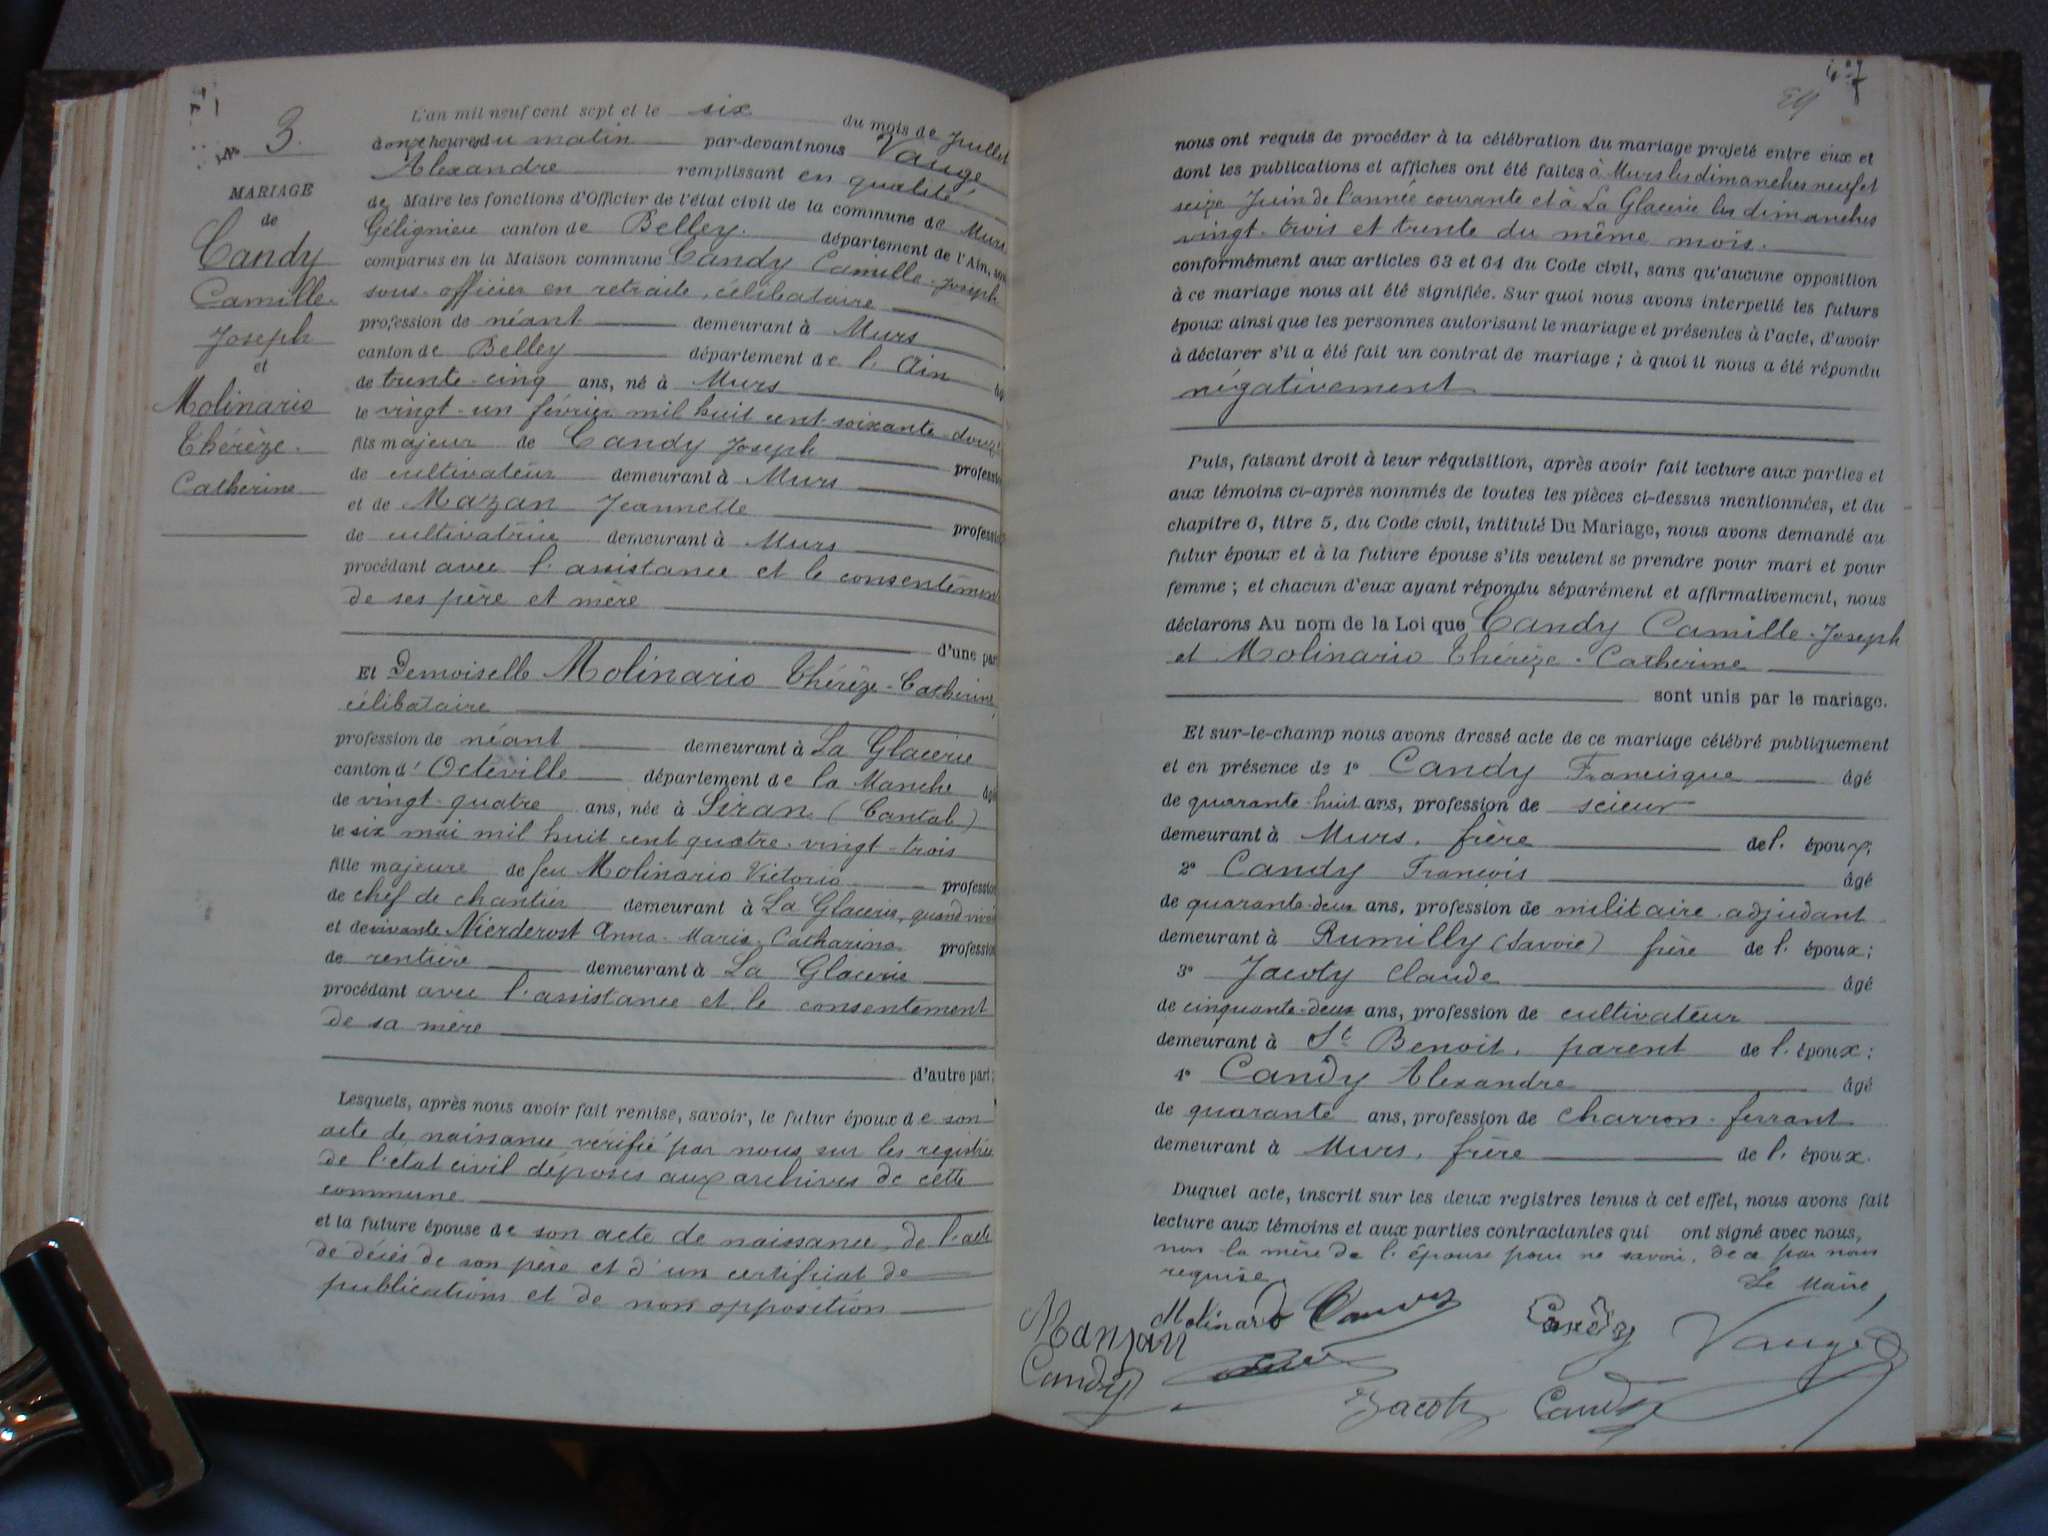 N° 3.
MARIAGE
de
Candy
Camille-
Joseph
et
Molinario
Thérèze-
Catherine
L'an mil neuf cent sept et le six du mois de Juillet
à onze heures du matin par-devant nous Vaugé
Alexandre remplissant en qualité
de Maire les fonctions d'Officier de l'état civil de la commune de Murs
Gélignieu canton de Belley. département de l'Ain, sont
comparus en la Maison commune Candy Camille-Joseph
sous-officier en retraite, célibataire
profession de néant demeurant à Murs
canton de Belley département de l'Ain âgé
de trente-cinq ans, né à Murs
le vingt-un février mil huit cent soixante-douze
fils majeur de Candy Joseph profession
de cultivateur demeurant à Murs
et de Mazan Jeannette profession
de cultivatrice demeurant à Murs
procédant avec l'assistance et le consentement
de ses père et mère
d'une part
Et Demoiselle Molinario Thérèze-Catherine,
célibataire
profession de néant demeurant à La Glacerie
canton d'Octeville département de la Manche âgé
de vingt-quatre ans, née à Siran (Cantal)
le six mai mil huit cent quatre-vingt-trois
fille majeure de feu Molinario Victorio profession
de chef de chantier demeurant à La Glacerie, quand vivait
et de vivante Nierderost Anna-Maria-Catharina profession
de rentière demeurant à La Glacerie
procédant avec l'assistance et le consentement
de sa mère
d'autre part;
Lesquels, après nous avoir fait remise, savoir, le futur époux de son
acte de naissance vérifié par nous sur les registres
de l'état civil déposés aux archives de cette
commune
et la future épouse de son acte de naissance, de l'acte
de décès de son père et d'un certificat de
publications et de non opposition
nous ont requis de procéder à la célébration du mariage projeté entre eux et
dont les publications et affiches ont été faites à Murs les dimanches neuf et
seize Juin de l'année courante et à La Glacerie les dimanches
vingt-trois et trente du même mois.
conformément aux articles 63 et 64 du Code civil, sans qu'aucune opposition
à ce mariage nous ait été signifiée. Sur quoi nous avons interpellé les futurs
époux ainsi que les personnes autorisant le mariage et présentes à l'acte, d'avoir
à déclarer s'il a été fait un contrat de mariage ; à quoi il nous a été répondu
négativement
Puis, faisant droit à leur réquisition, après avoir fait lecture aux parties et
aux témoins ci-après nommés de toutes les pièces ci-dessus mentionnées, et du
chapitre 6, titre 5, du Code civil, intitulé Du Mariage, nous avons demandé au
futur époux et à la future épouse s'ils veulent se prendre pour mari et pour
femme ; et chacun d'eux ayant répondu séparément et affirmativement, nous
déclarons Au nom de la Loi que Candy Camille-Joseph
et Molinario Thérèze-Catherine
sont unis par le mariage.
Et sur-le-champ nous avons dressé acte de ce mariage célébré publiquement
et en présence de 1° Candy Francisque âgé
de quarante-huit ans, profession de scieur
demeurant à Murs, frère de l'époux;
2° Candy François âgé
de quarante-deux ans, profession de militaire adjudant
demeurant à Rumilly (Savoie) frère de l'époux;
3° Jacoty Claude âgé
de cinquante-deux ans, profession de cultivateur
demeurant à St Benoit, parent de l'époux;
4° Candy Alexandre âgé
de quarante ans, profession de charron-ferrant
demeurant à Murs, frère de l'époux.
Duquel acte, inscrit sur les deux registres tenus à cet effet, nous avons fait
lecture aux témoins et aux parties contractantes qui ont signé avec nous,
non la mère de l'épouse pour ne savoir, de ce par nous
requise.
Le Maire,
Molinario Candy Candy Vaugé
Candy
Jacoty Candy